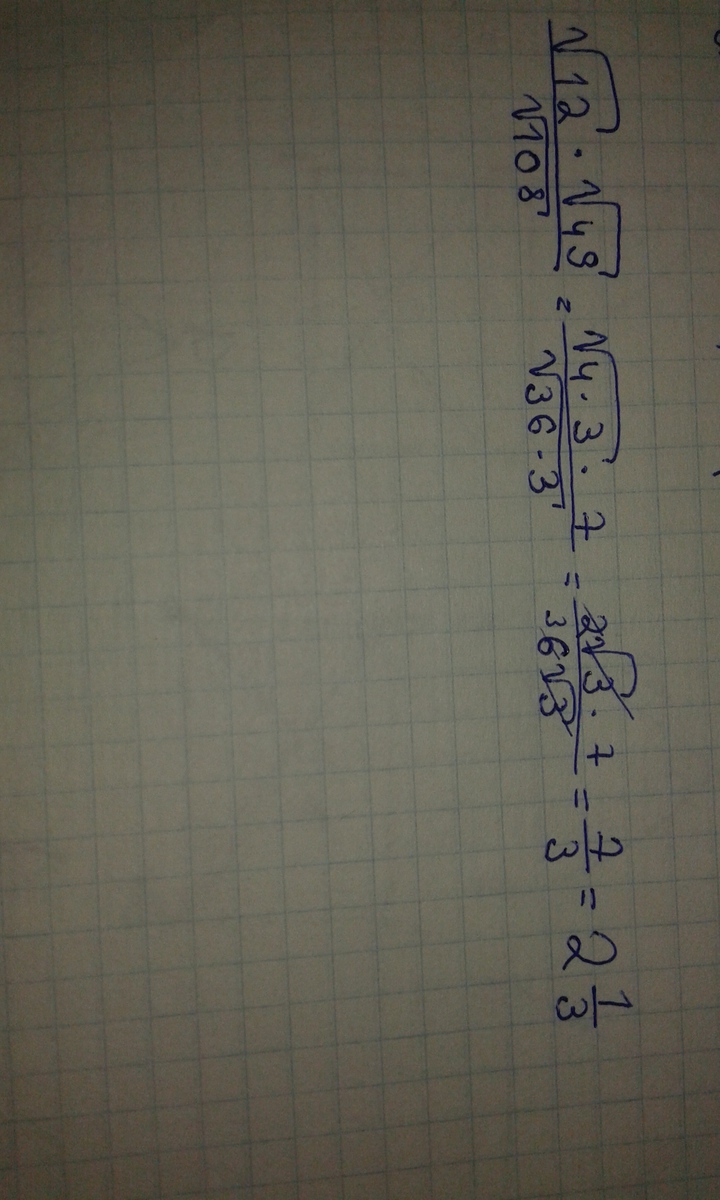 \frac{\sqrt{12} \cdot \sqrt{49}}{\sqrt{108}} = \frac{\sqrt{4 \cdot 3} \cdot 7}{\sqrt{36 \cdot 3}} = \frac{2\sqrt{3} \cdot 7}{{}_{3}6\sqrt{3}} = \frac{7}{3} = 2\frac{1}{3}